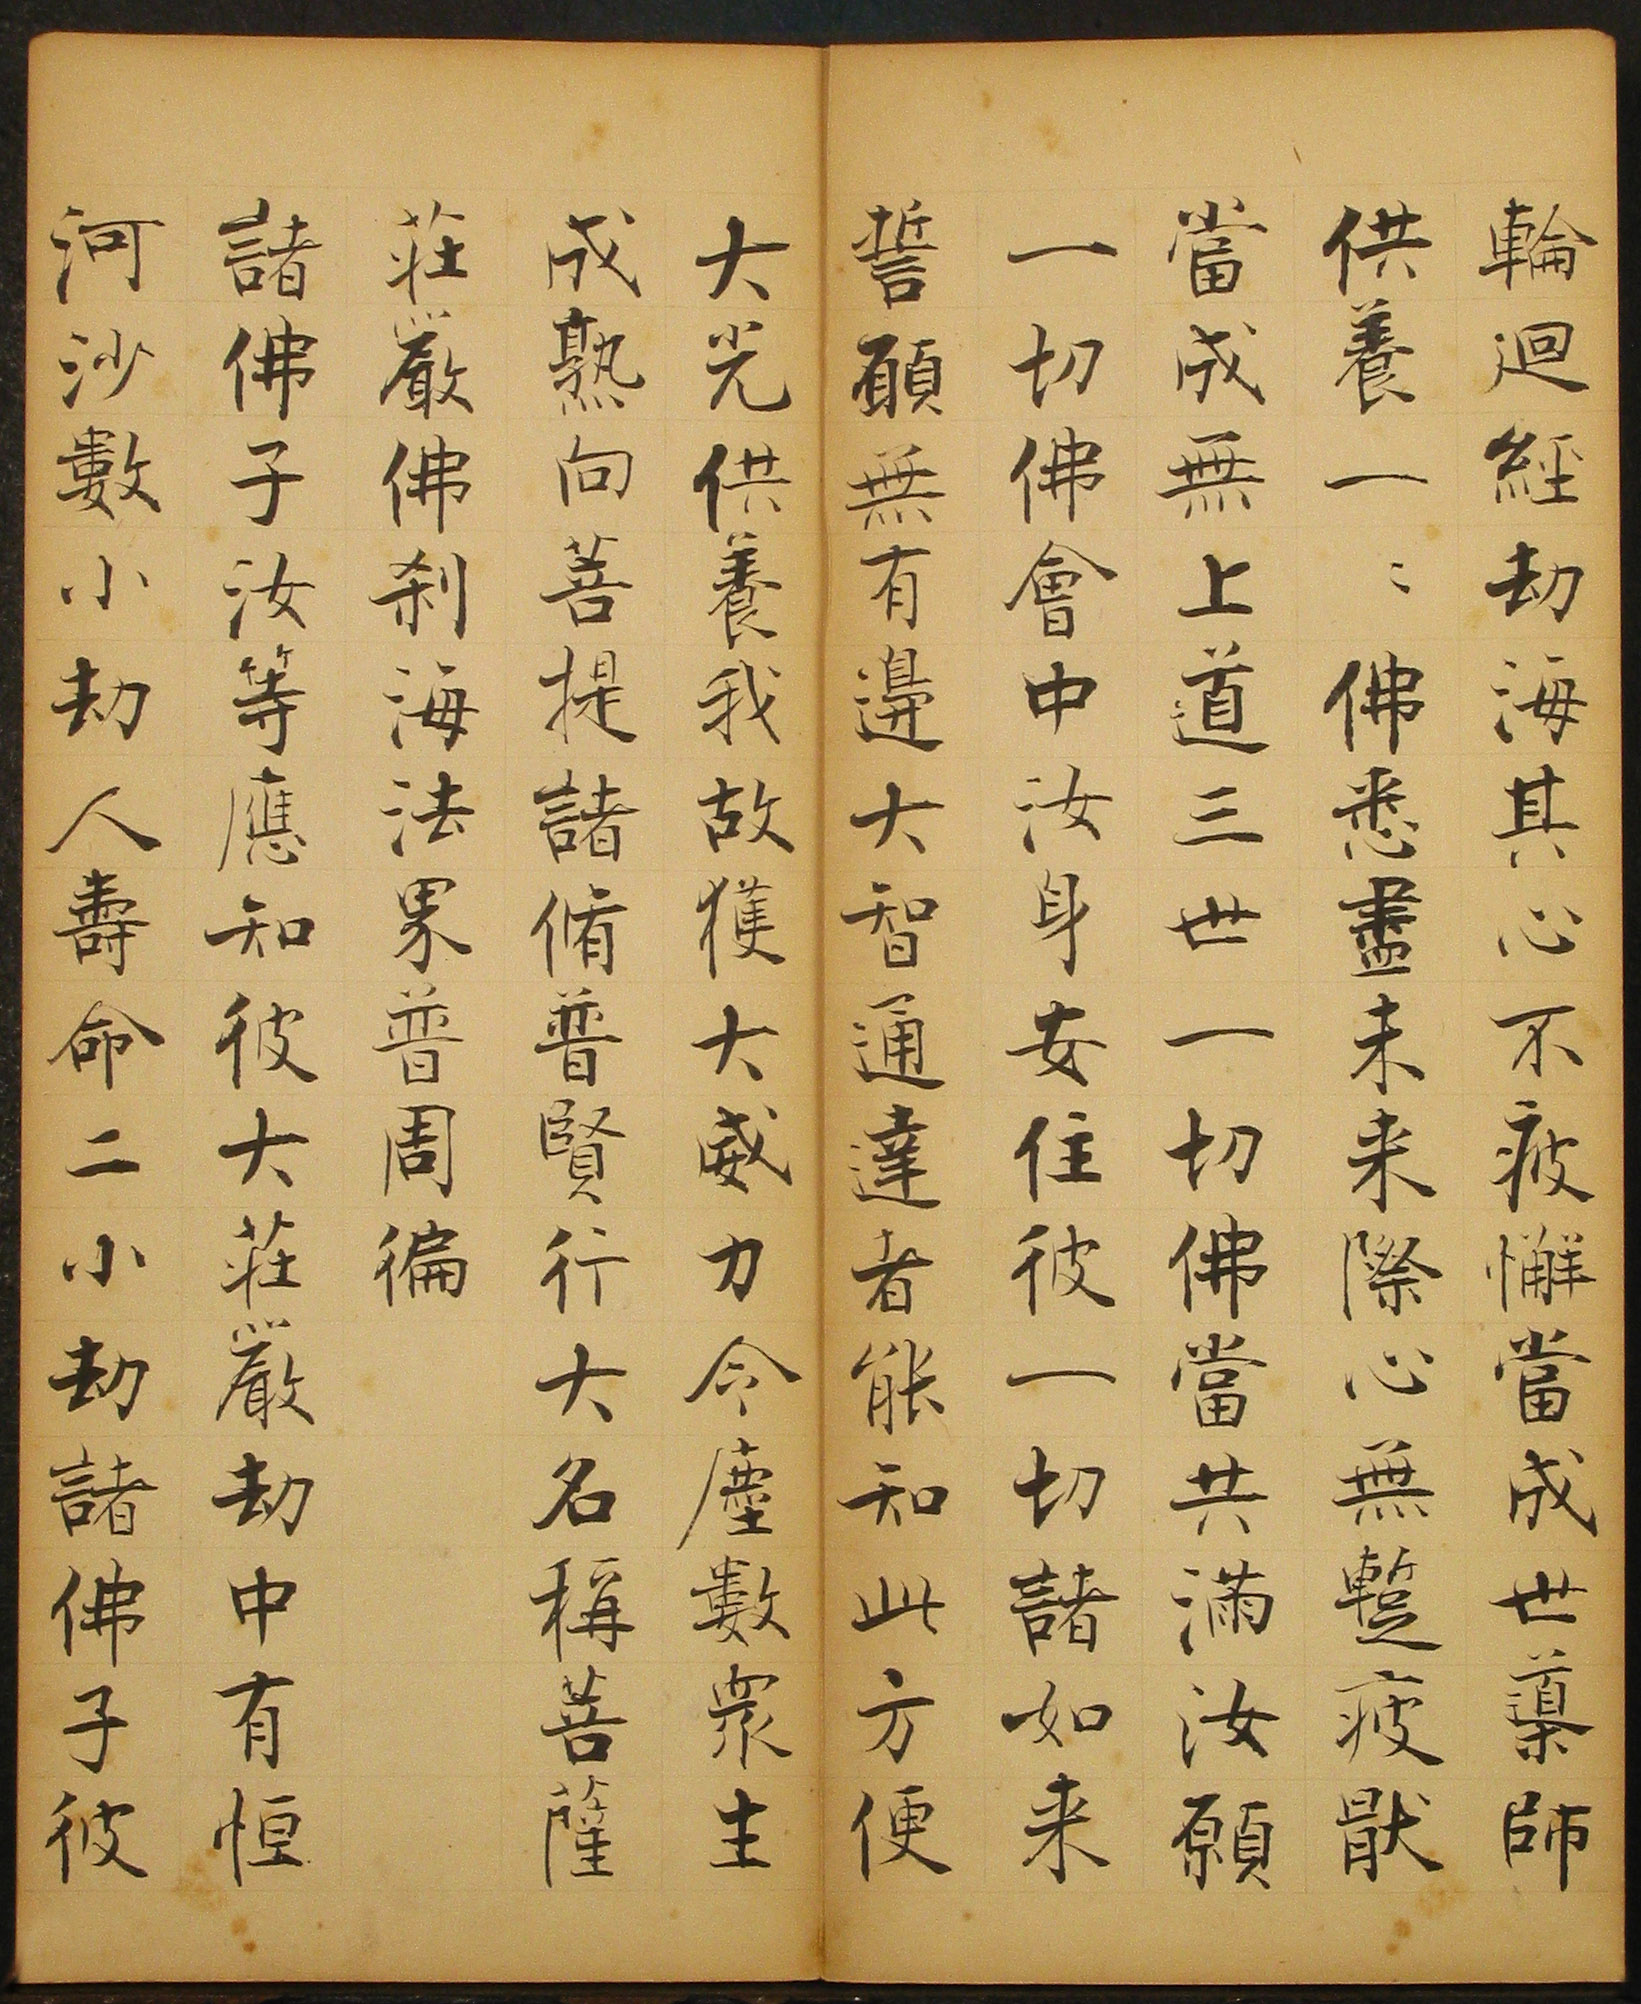 輪迴經劫海其心不疲懈當成世導師
供養一〻佛悉盡未来際心無暫疲猒
當成無上道三世一切佛當共滿汝願
一切佛會中汝身安住彼一切諸如来
誓願無有邊大智通達者能知此方便
大光供養我故獲大威力令塵數眾生
成熟向菩提諸脩普賢行大名稱菩薩
莊嚴佛刹海法界普周徧
諸佛子汝等應知彼大莊嚴劫中有恒
河沙數小劫人壽命二小劫諸佛子彼